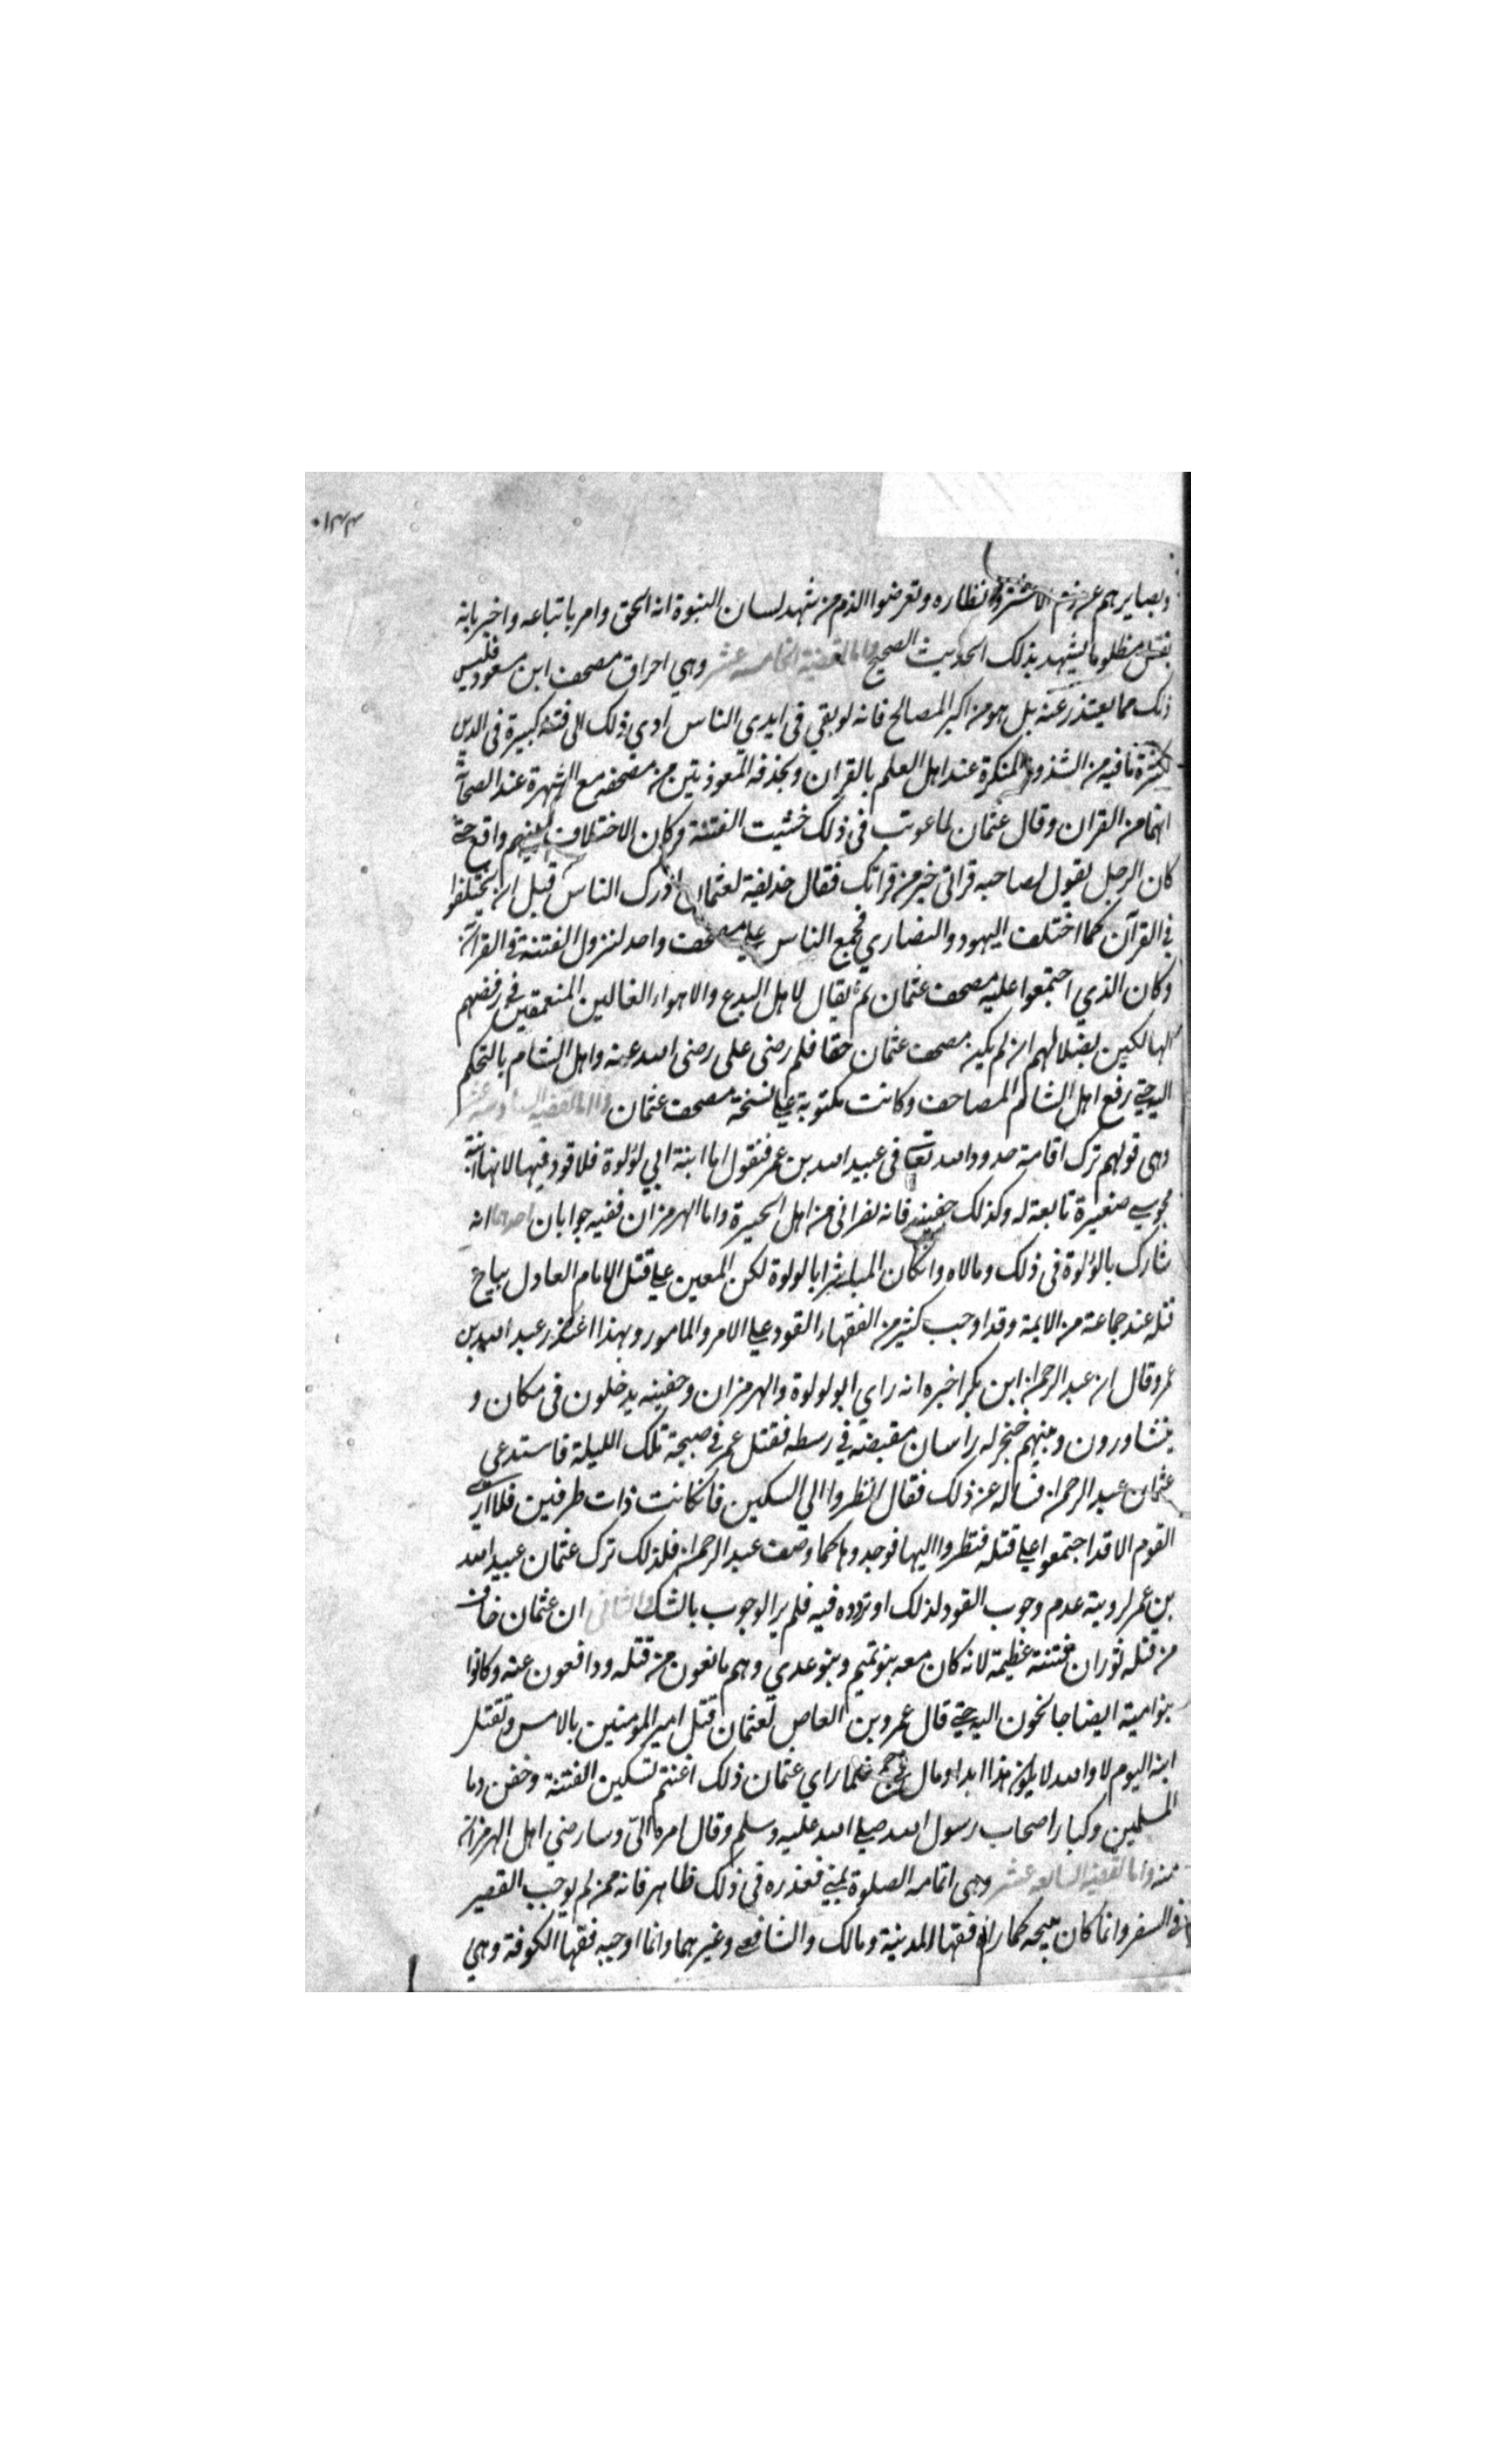 ١٣٣
وبصايرهم عن ذم الاشتر وانظاره وتعرضوا الذم من شهد لسان النبوة انه الحق وامر باتباعه واخبر بانه
يقتل مظلوما يشهد بذلك الحديث الصحيح واما القضية الخامسة عشر وهي احراق مصحف ابن مسعود فليس
ذلك مما يعتذر عنه بل هو من اكبر المصالح فانه لو بقي في ايدي الناس ادي ذلك الى فتنة كبيرة في الدين
لكثرة ما فيه من الشذوذ المنكرة عند اهل العلم بالقران وبحذفه المعوذتين من مصحفه مع الشهرة عند الصحابة
انهما من القران وقال عثمان لما عوتب في ذلك خشيت الفتنة وكان الاختلاف بينهم واقع حتى
كان الرجل يقول لصاحبه قراتي خير من قراتك فقال حذيفة لعثمان ادرك الناس قبل ان يختلفوا
في القرآن كما اختلف اليهود والنصاري فجمع الناس علي مصحف واحد لتزول الفتنة في القران
وكان الذي اجتمعوا عليه مصحف عثمان ثم يقال لاهل البدع والاهواء الغالين المنعمقين في رفضهم
الهالكين بضلالهم ان لم يكن مصحف عثمان حقا فلم رضى على رضى الله عنه واهل الشام بالتحكم
اليه حتي رفع اهل الشام المصاحف وكانت مكتوبة علي نسخة مصحف عثمان واما القضيه السادسة عشر
وهى قولهم ترك اقامة حدود الله تعالى في عبيد الله بن عمر فنقول اما ابنة ابي لؤلوة فلا قود فيها لانها ابنة
مجوسي صغيرة تابعة له وكذلك جفينه فانه نصرانى من اهل الحيرة واما الهرمزان ففيه جوابان احدهما انه
شارك بالؤلوة في ذلك ومالاه وان كان المباشر ابا لولوة لكن المعين علي قتل الامام العادل يباح
قتله عند جماعة من الايمة وقد اوجب كثير من الفقهاء القود علي الامر والمامور وبهذا اعتذر عبد الله بن
عمر وقال ان عبد الرحمن ابن بكر اخبره انه راى ابو لولوة والهرمزان وجفينه يدخلون في مكان و
يتشاورون وبينهم خنجر له راسان مقبضه في وسطه فقتل عمر في صبيحة تلك الليلة فاستدعى
عثمان عبد الرحمن فساله عن ذلك فقال انظروا الي السكين فان كانت ذات طرفين فلا ارى
القوم الا قد اجتمعوا علي قتله فنظروا اليها فوجدوها كما وصف عبد الرحمن فلذلك ترك عثمان عبيد الله
بن عمر لروية عدم وجوب القود لذلك او تردده فيه فلم ير الوجوب بالشك والثاني ان عثمان خاف
من قتله ثوران فتنة عظيمة لانه كان معه بنو تميم وبنو عدي وهم مانعون من قتله ودافعون عنه وكانوا
بنو امية ايضا جانحون اليه حتي قال عمرو بن العاص لعثمان قتل امير المومنين بالامس وتقتل
ابنه اليوم لا والله لا يكون هذا ابدا ومال في جمح فلما راي عثمان ذلك اغتنم تسكين الفتنة وحقن دما
المسلمين وكبار اصحاب رسول الله صلي الله عليه وسلم وقال امره الىّ وسارضي اهل الهرمزان
منه واما القضية السابعة عشر وهى اتمامه الصلوة بمنى فعذره في ذلك ظاهر فانه ممن لم يوجب القصر
في السفر وانما كان يبيحه كما راه فقها المدينة ومالك والشافعي وغيرهما وانما اوجبه فقها الكوفة وهي